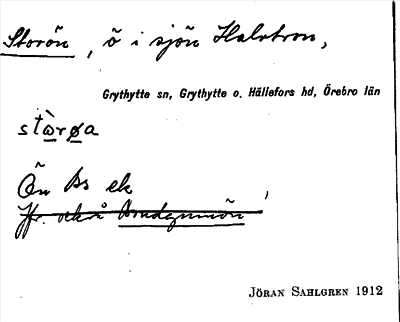 Storön, ö i sjön Halvtron,
Grythytte sn, Grythytte o. Hällefors hd, Örebro län
stὼrøa
Ön Bs ek
Jfr. också
JÖRAN SAHLGREN 1912